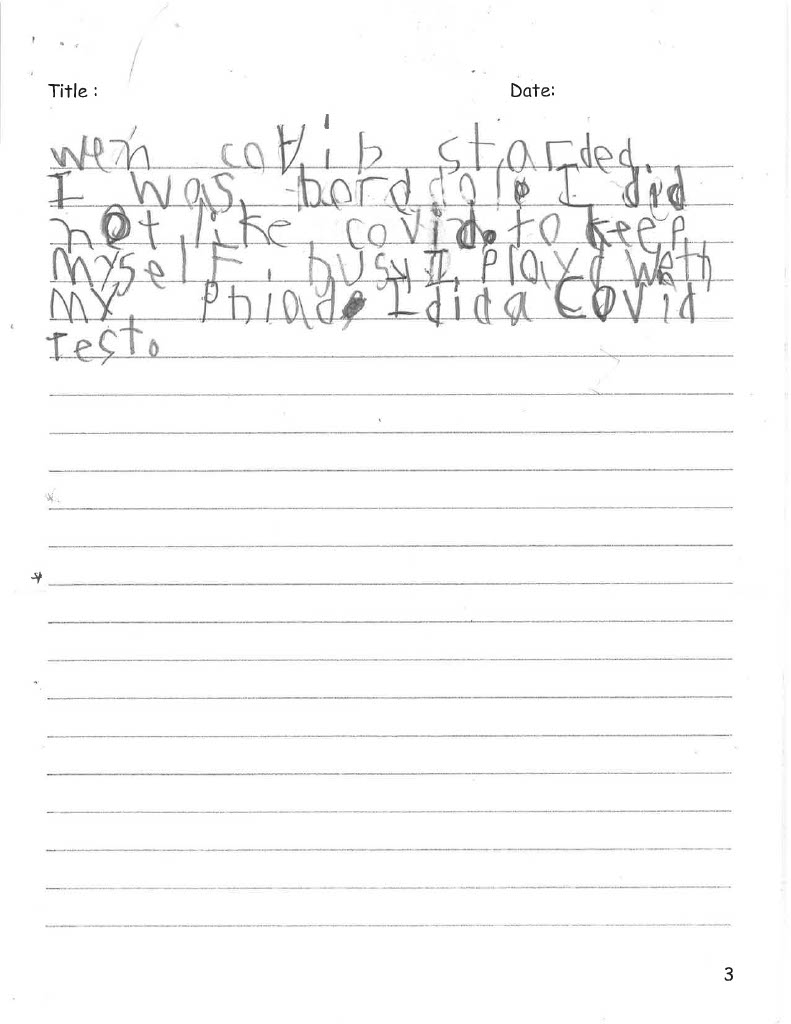 Title : Date:
wen covib starded
I was bord. I did
not like covid. to keep
myself busy I playd weth
my phiad. I did a Covid
test.
3